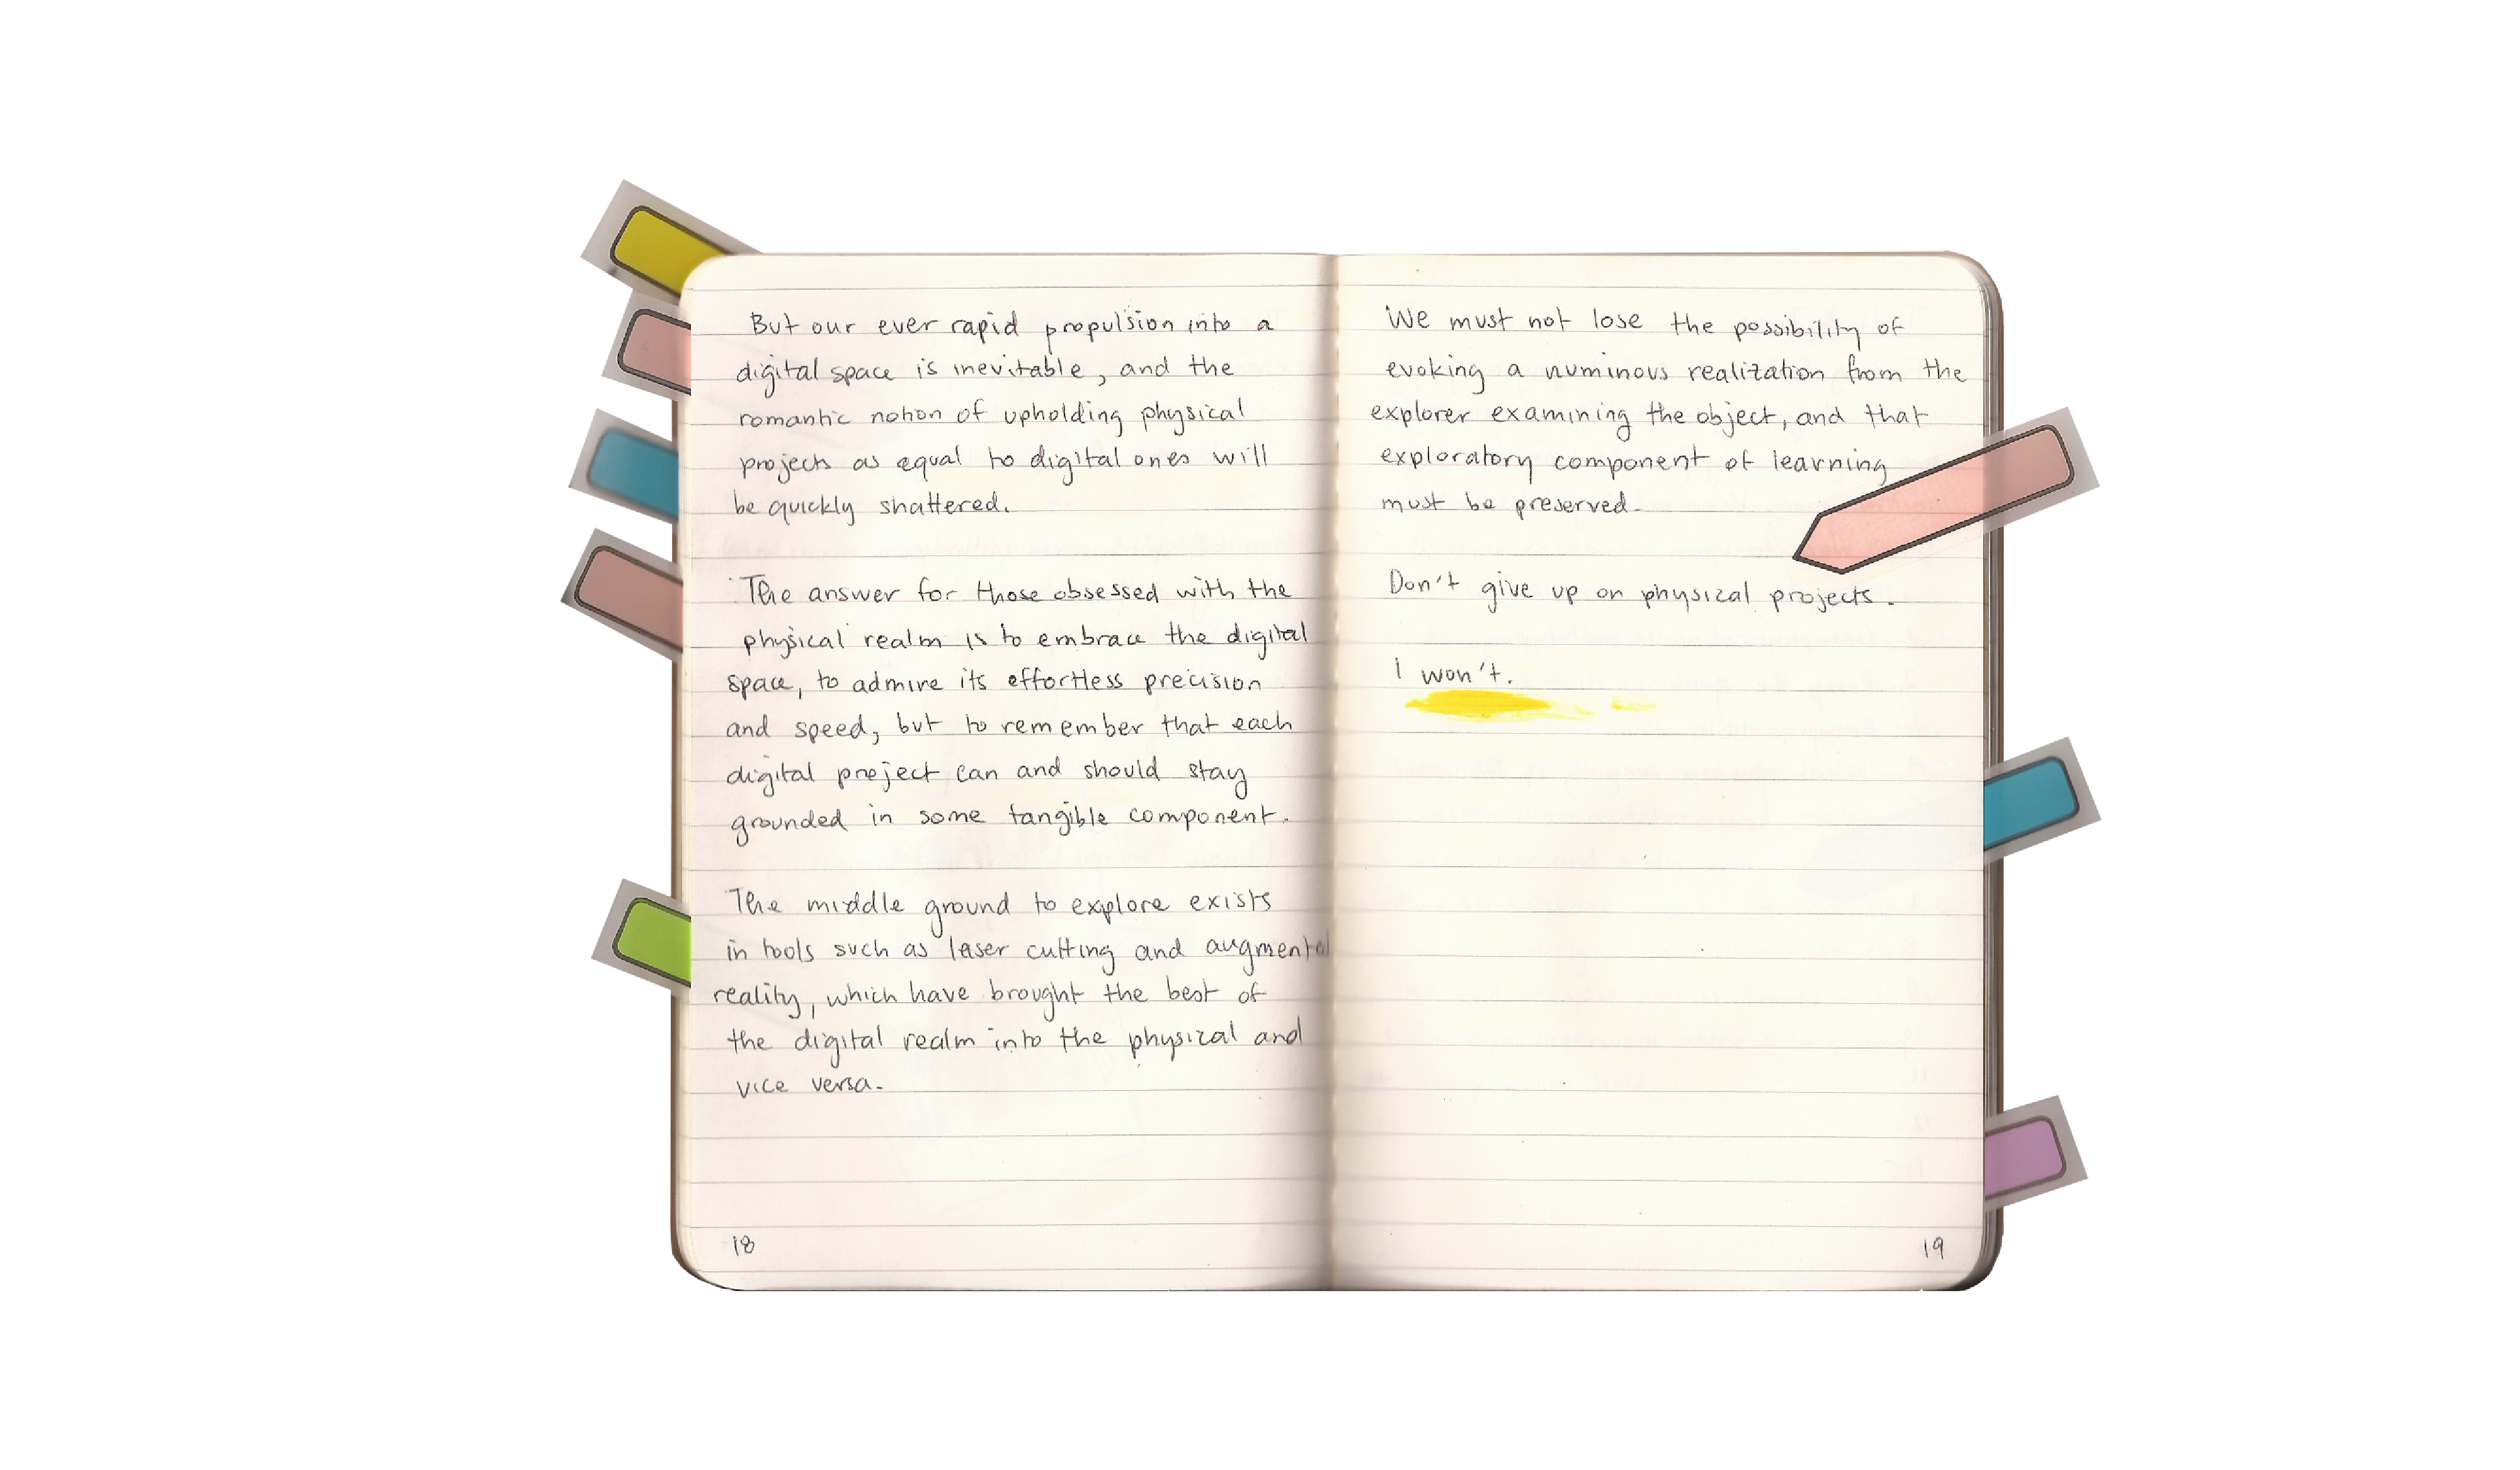 But our ever rapid propulsion into a
digital space is inevitable, and the
romantic notion of upholding physical
projects as equal to digital ones will
be quickly shattered.
The answer for those obsessed with the
physical realm is to embrace the digital
space, to admire its effortless precision
and speed, but to remember that each
digital project can and should stay
grounded in some tangible component.
The middle ground to explore exists
in tools such as laser cutting and augmented
reality, which have brought the best of
the digital realm into the physical and
vice versa.
18
We must not lose the possibility of
evoking a numinous realization from the
explorer examining the object, and that
exploratory component of learning
must be preserved.
Don't give up on physical projects.
I won't.
19